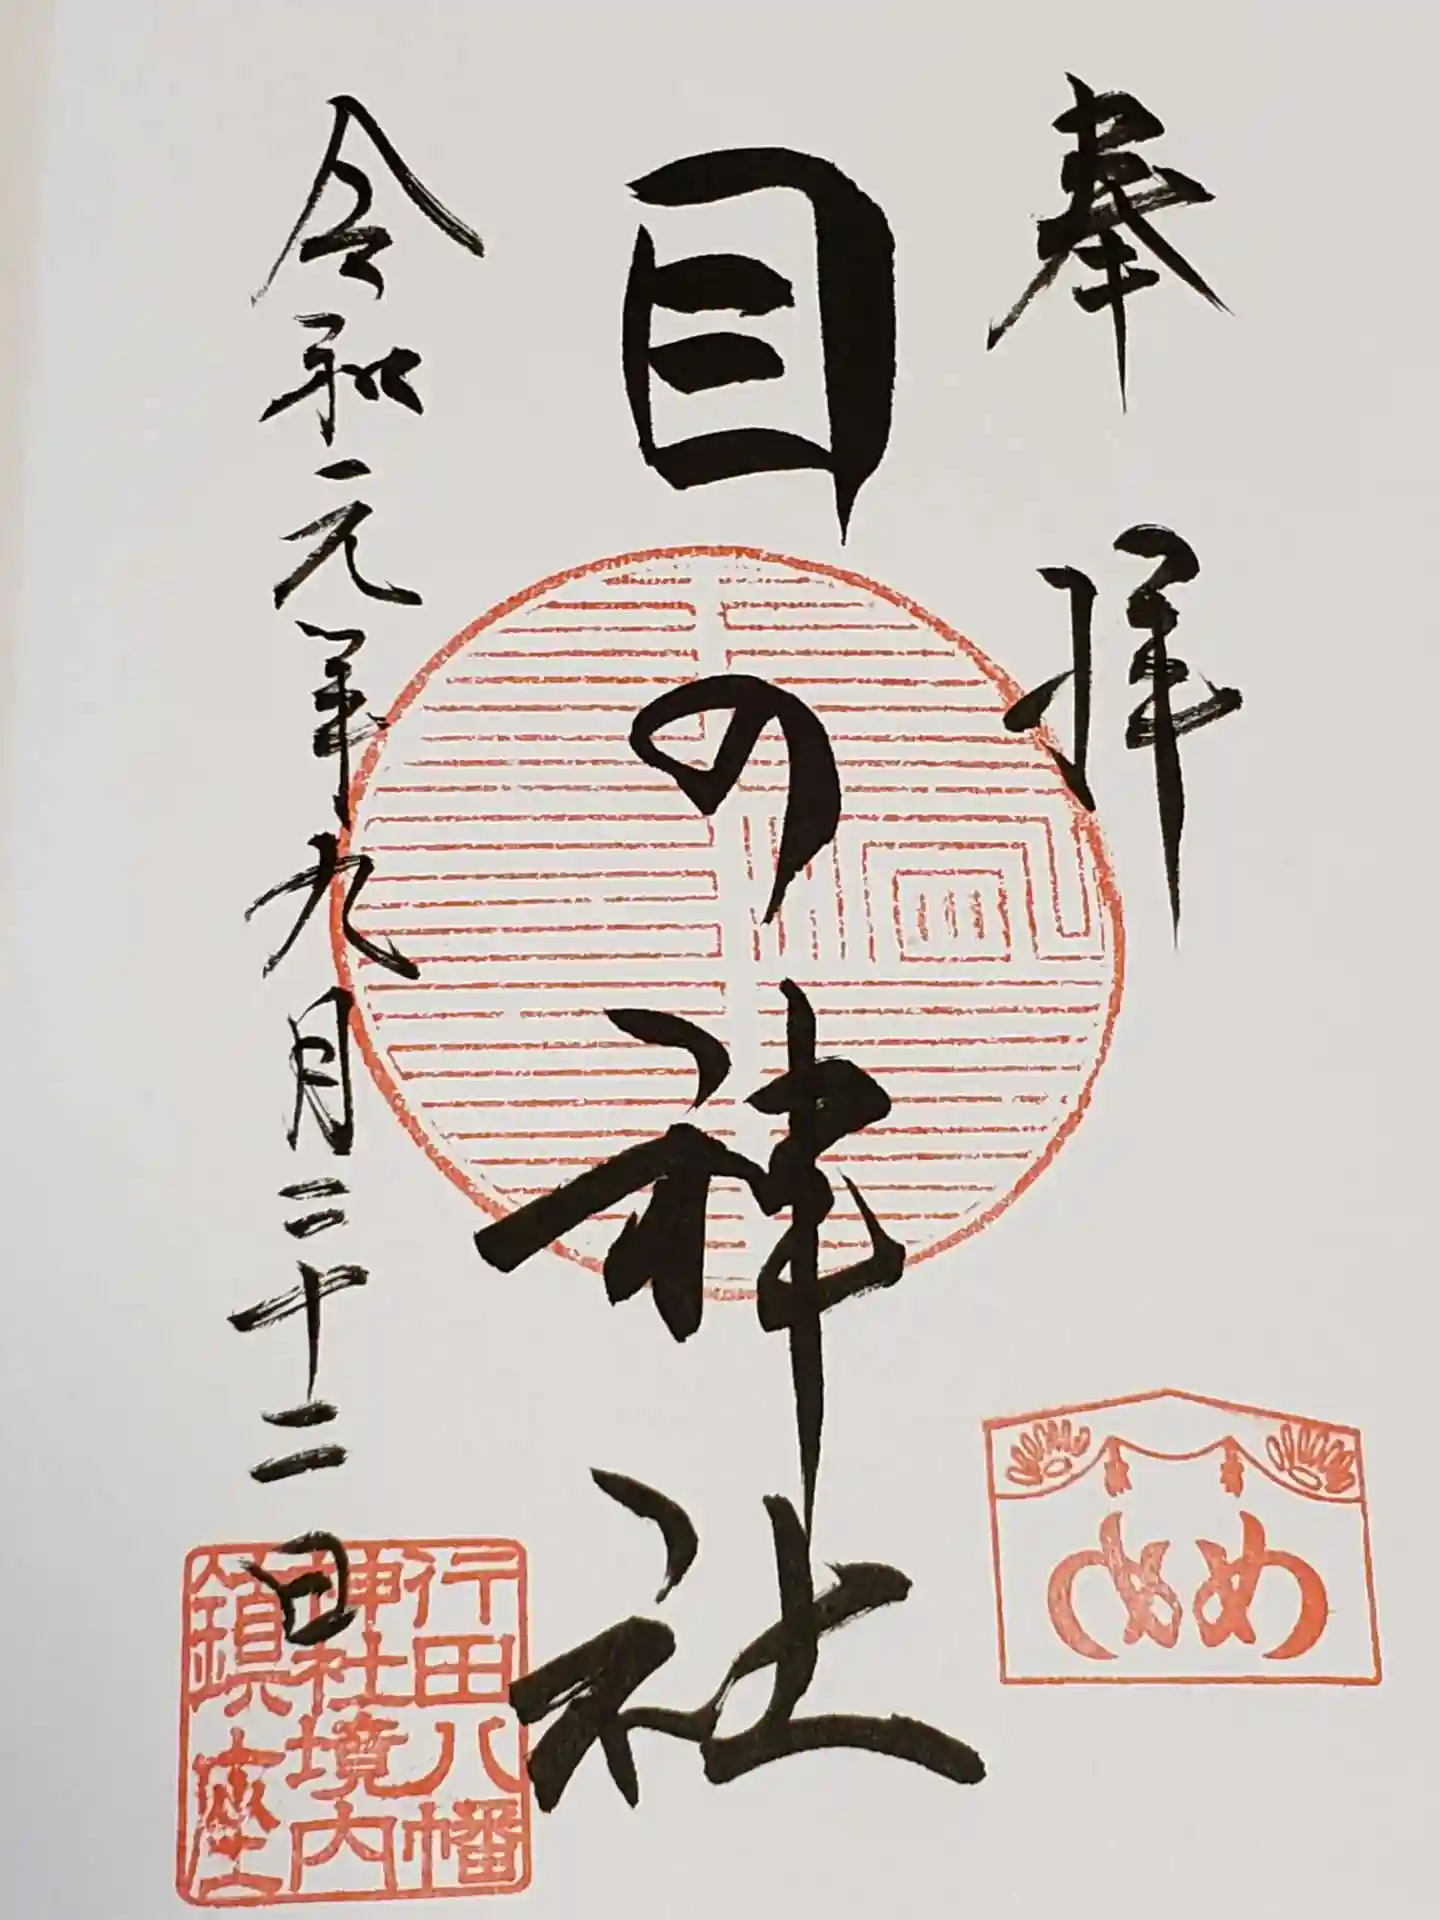 奉拝
目の神社
令和元年九月二十二日
行田八幡
神社境内
鎮座
め め